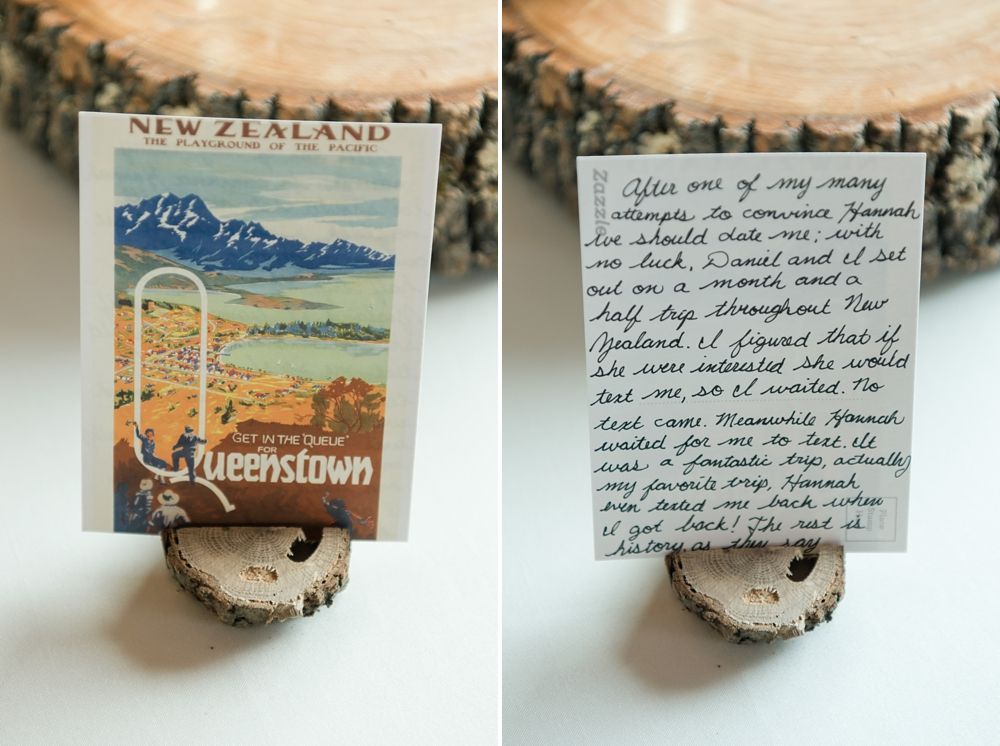 NEW ZEALAND
THE PLAYGROUND OF THE PACIFIC
GET IN THE 'QUEUE'
FOR
Queenstown
Zazzle
After one of my many
attempts to convince Hannah
we should date me; with
no luck, Daniel and I set
out on a month and a
half trip throughout New
Zealand. I figured that if
she were interested she would
text me, so I waited. No
text came. Meanwhile Hannah
waited for me to text. It
was a fantastic trip, actually
my favorite trip, Hannah
even texted me back when
I got back! The rest is
history as they say
Place
Stamp